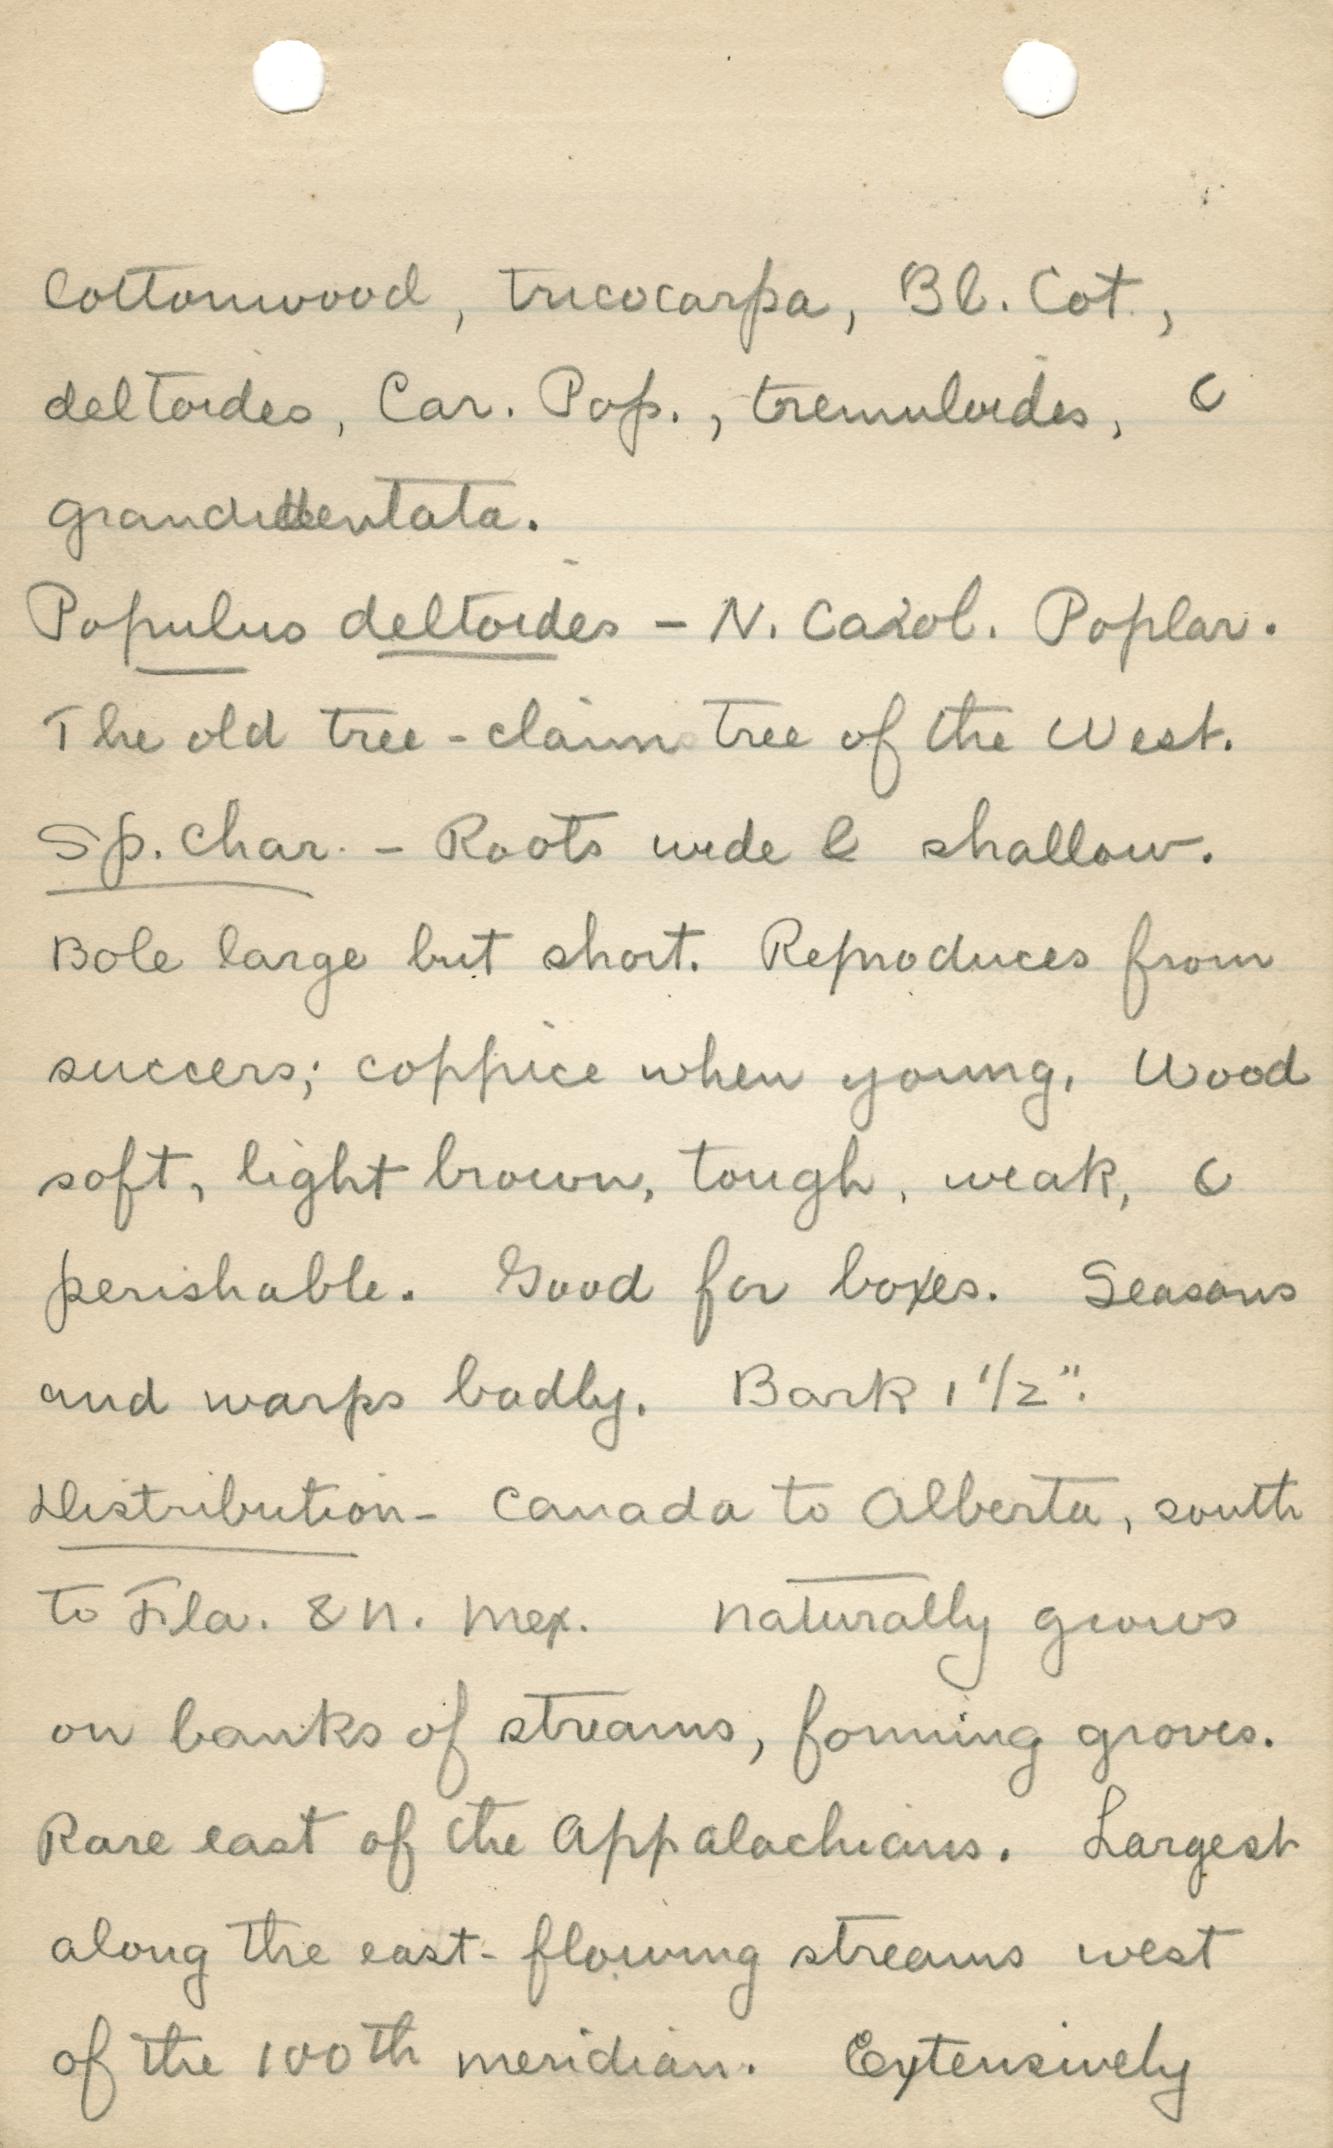 Cottonwood, tricocarpa, Bl. Cot.,
deltoides, Car. Pop., tremuloides, &
grandidentata.
Populus deltoides - N. Carol. Poplar.
The old tree-claim tree of the West.
Sp. Char. - Roots wide & shallow.
Bole large but short. Reproduces from
succers; coppice when young. Wood
soft, light brown, tough, weak, &
perishable. Good for boxes. Seasons
and warps badly. Bark 1 1/2".
Distribution- Canada to Alberta, south
to Fla. & N. Mex. Naturally grows
on banks of streams, forming groves.
Rare east of the Appalachians. Largest
along the east-flowing streams west
of the 100th meridian. Extensively